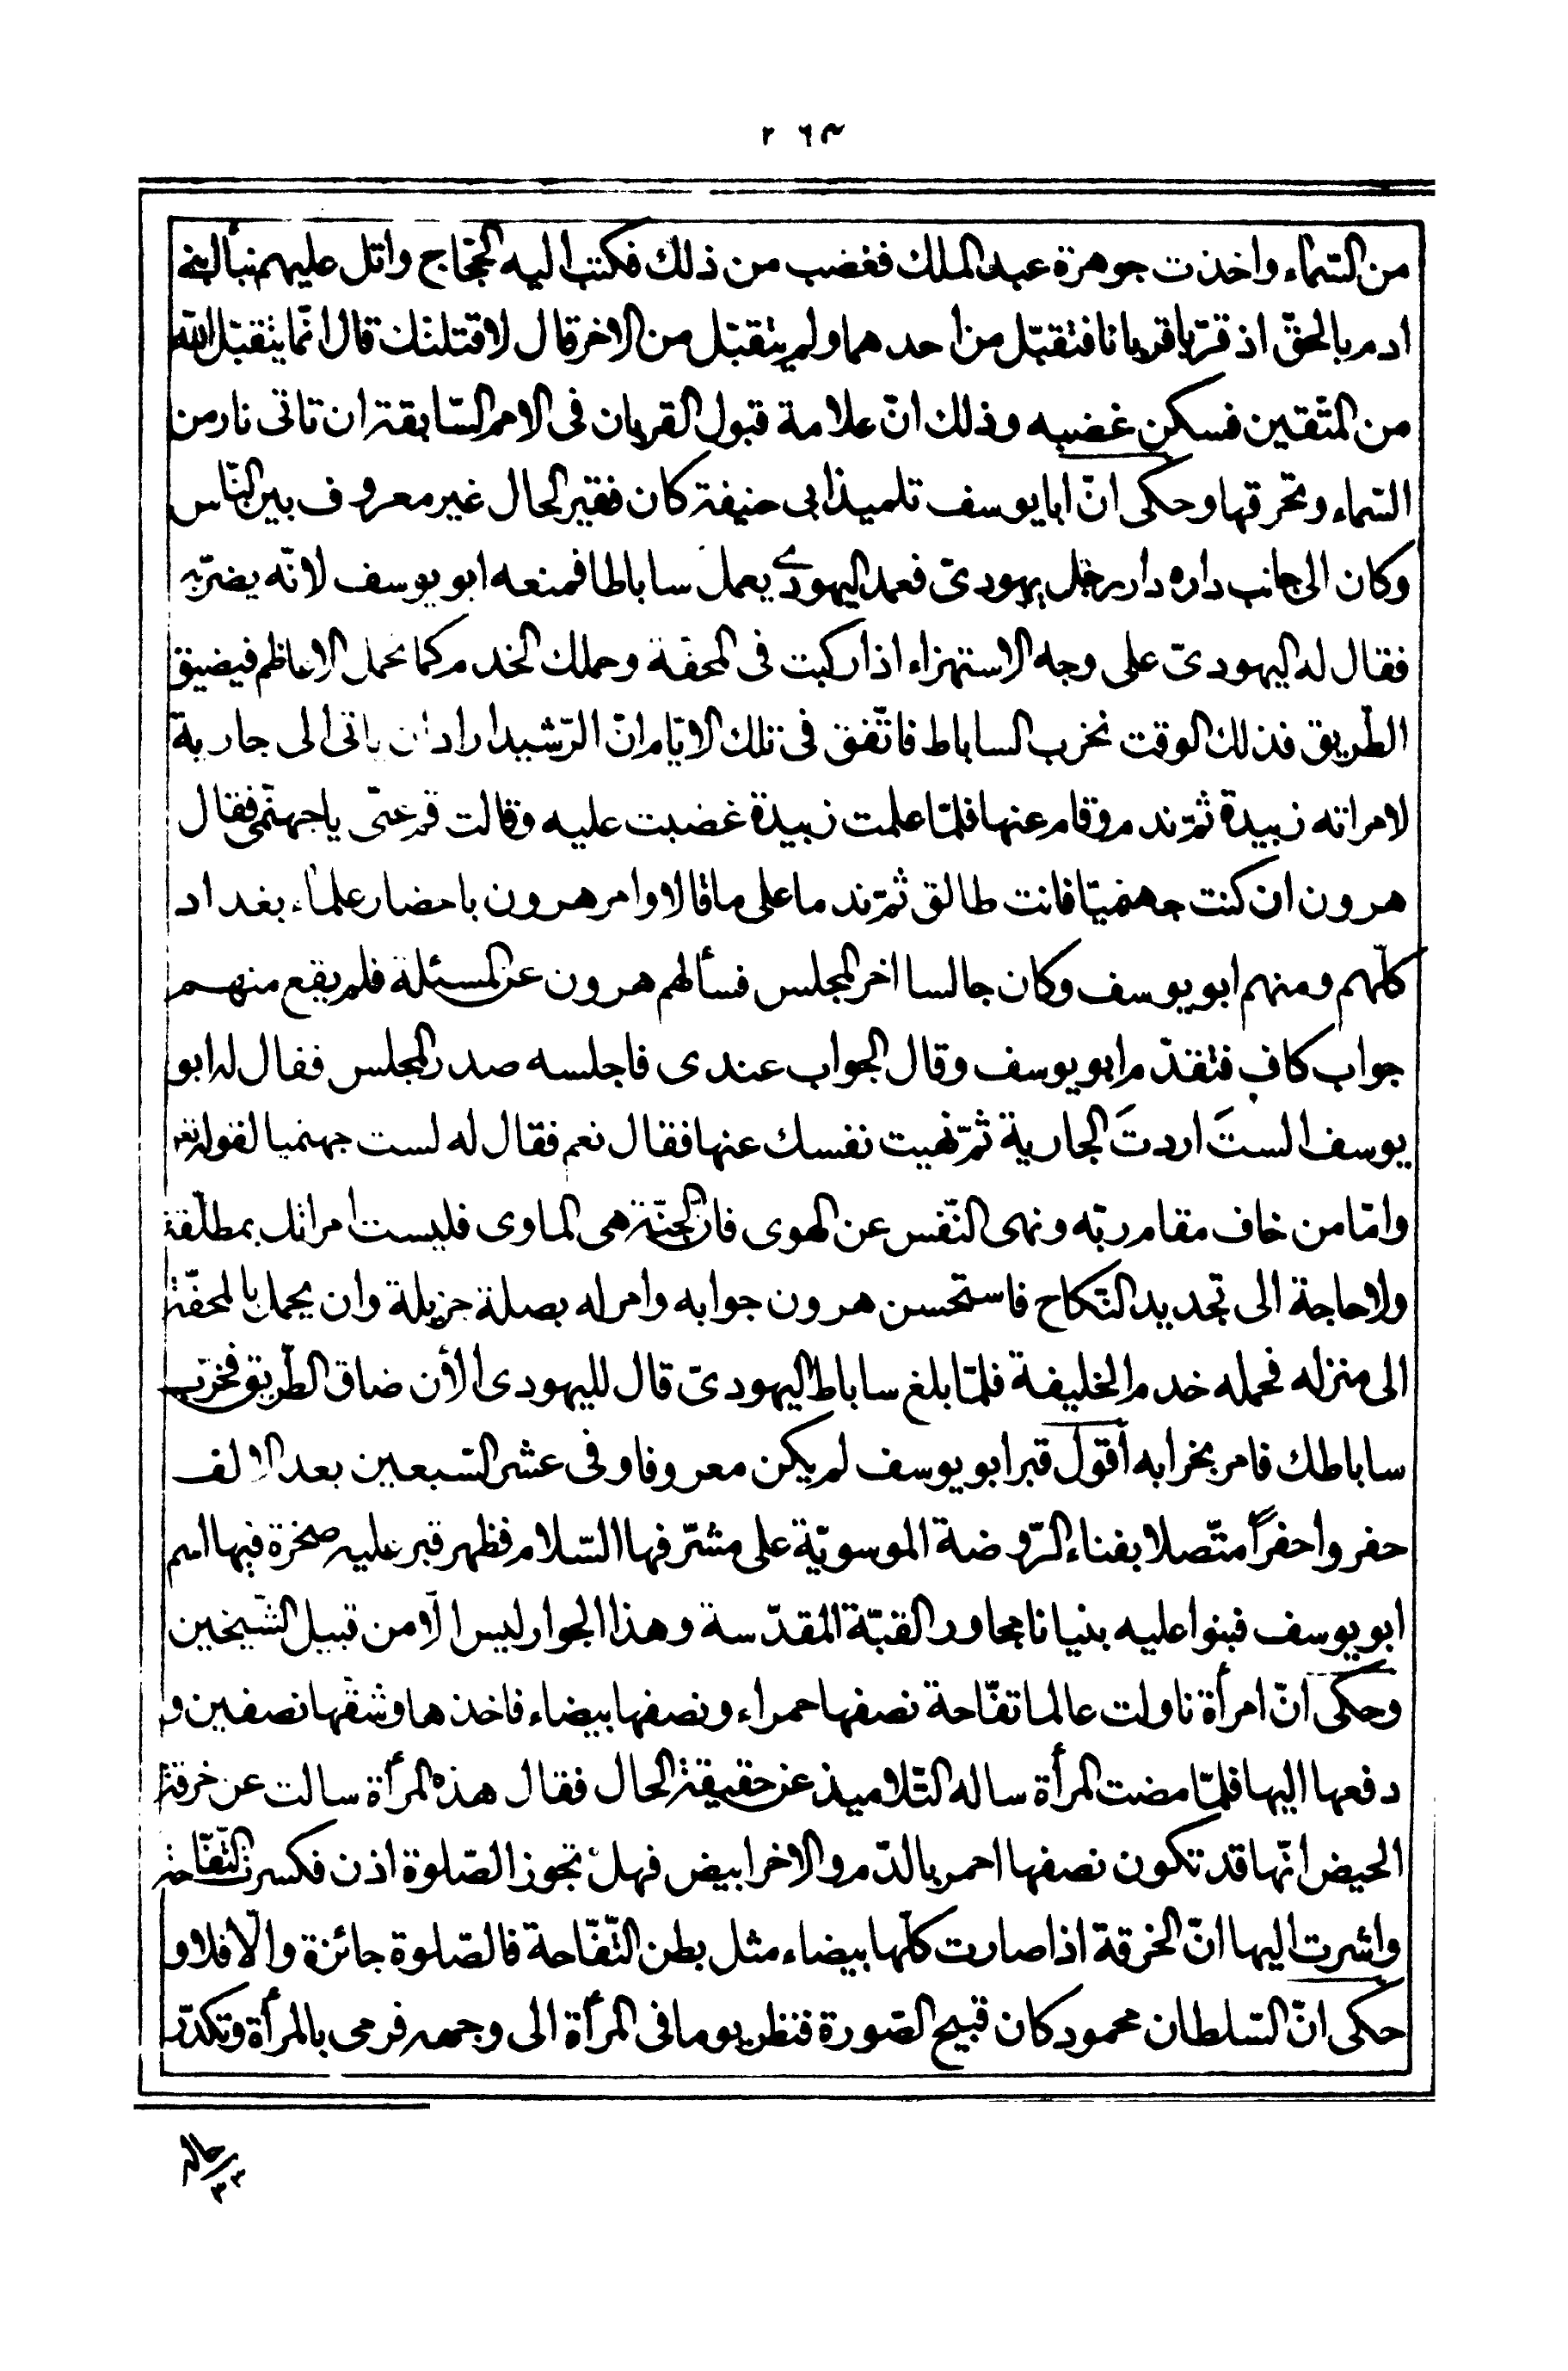 ٢٦٣
من السّماء واخذت جوهرة عبد الملك فغضب من ذلك فكتب اليه الحجّاج واتل عليهم نبأ ابنى
ادم بالحقّ اذ قرّبا قربانا فتقبّل من احدهما ولم يتقبّل من الاخر قال لاقتلنّك قال انّما يتقبّل اللّه
من المتّقين فسكن غضبه وذلك انّ علامة قبول القربان فى الامم السّابقة ان تاتى نار من
السّماء وتحرقها وحكى انّ ابا يوسف تلميذ ابى حنيفة كان فقير الحال غير معروف بين النّاس
وكان الى جانب داره دار رجل يهودىّ فعمد اليهودي يعمل ساباطا فمنعه ابو يوسف لانّه يضرّ به
فقال له اليهودىّ على وجه الاستهزاء اذا ركبت فى المحفّة وحملك الخدم كما تحمل الاعاظم فيضيق
الطّريق فذلك الوقت نخرب الساباط فاتّفق فى تلك الايّام انّ الرّشيد اراد ان ياتى الى جارية
لامراته زبيدة ثمّ ندم وقام عنها فلمّا علمت زبيدة غضبت عليه وقالت قم عنّى يا جهنّمى فقال
هرون ان كنت جهنميّا فانت طالق ثمّ ندما على ما قالا وامر هرون باحضار علماء بغداد
كلّهم ومنهم ابو يوسف وكان جالسا اخر المجلس فسألهم هرون عن المسئلة فلم يقع منهم
جواب كاف فتقدّم ابو يوسف وقال الجواب عندى فاجلسه صدر المجلس فقال له ابو
يوسف الستَ اردتَ الجارية ثمّ نهيت نفسك عنها فقال نعم فقال له لست جهنميا لقوله تعـ
وامّا من خاف مقام ربّه ونهى النّفس عن الهوى فانّ الجنّة هى الماوى فليست امراتك بمطلّقة
ولا حاجة الى تجديد النّكاح فاستحسن هرون جوابه وامر له بصلة جزيلة وان يحمل بالمحفّة
الى منزله فحمله خدم الخليفة فلمّا بلغ ساباط اليهودىّ قال لليهودى الأن ضاق الطّريق فخرّب
ساباطك فامر بخرابه أقول قبر ابو يوسف لم يكن معروفا وفى عشر السّبعين بعد الالف
حفروا حفرًا متّصلا بفناء الرّوضة الموسويّة على مشرّفها السّلام فظهر قبر عليه صخرة فيها اسم
ابو يوسف فبنوا عليه بنيانا مجاور القبّة المقدّسة وهذا الجوار ليس الّا من قبيل الشّيخين
وحكى انّ امرأة ناولت عالما تفّاحة نصفها حمراء ونصفها بيضاء فاخذها وشقّها نصفين و
دفعها اليها فلمّا مضت المرأة ساله التّلاميذ عن حقيقة الحال فقال هذه المرأة سالت عن خرقة
الحيض انّها قد تكون نصفها احمر بالدّم والاخر ابيض فهل تجوز الصّلوة اذن فكسرت التّفّاحة
واشرت اليها انّ الخرقة اذا صارت كلّها بيضاء مثل بطن التّفّاحة فالصّلوة جائزة والّا فلا و
حكى انّ السّلطان محمود كان قبيح الصّورة فنظر يوما فى المرأة الى وجهه فرمى بالمرأة وتكدّر
حاله
٣٣